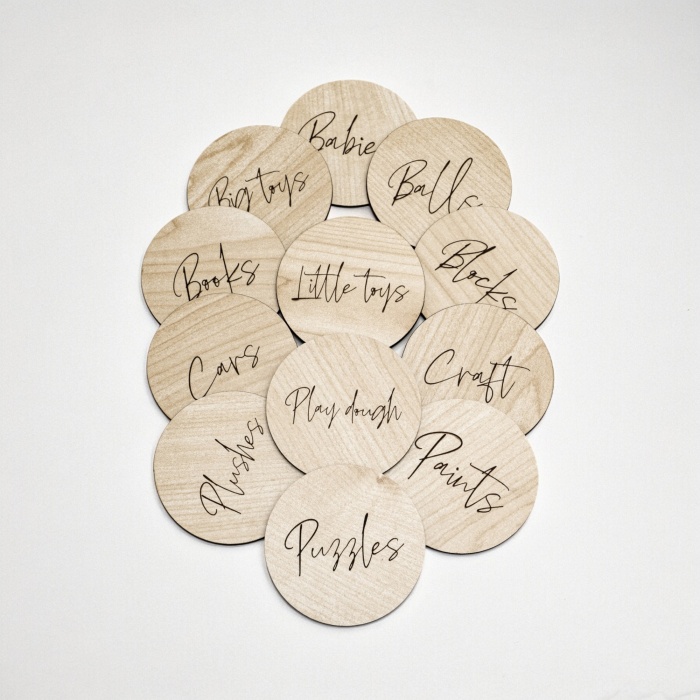 Babie
Big toys
Balls
Books
Little toys
Blocks
Cars
Craft
Play dough
Plushes
Paints
Puzzles